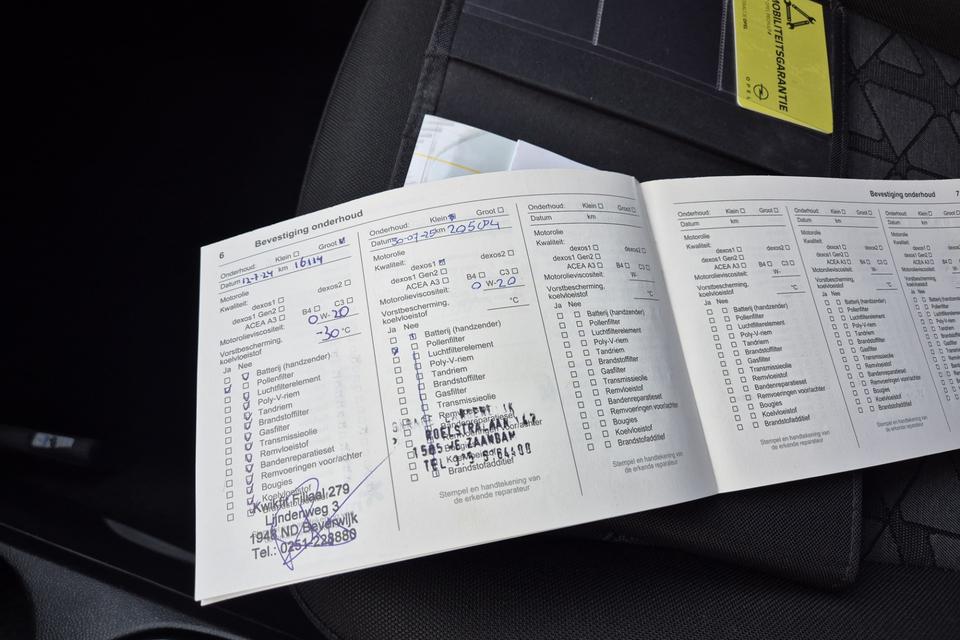 MOBILITEITSGARANTIE
OPEL
6
Bevestiging onderhoud
Onderhoud: Klein Groot
Datum 12-7-24 km 16114
Motorolie
Kwaliteit: dexos1 dexos2
dexos1 Gen2
ACEA A3 B4 C3
Motorolieviscositeit: 0 W-20
Vorstbescherming, koelvloeistof -30 °C
Ja Nee
Batterij (handzender)
Pollenfilter
Luchtfilterelement
Poly-V-riem
Tandriem
Brandstoffilter
Gasfilter
Transmissieolie
Remvloeistof
Bandenreparatieset
Remvoeringen voor/achter
Bougies
Koelvloeistof
Kwikfit Filiaal 279
Lijndenweg 3
1948 ND Beverwijk
Tel.: 0251-228880
Onderhoud: Klein Groot
Datum 30-07-25 km 20504
Motorolie
Kwaliteit: dexos1 dexos2
dexos1 Gen2
ACEA A3 B4 C3
Motorolieviscositeit: 0 W-20
Vorstbescherming, koelvloeistof °C
Ja Nee
Batterij (handzender)
Pollenfilter
Luchtfilterelement
Poly-V-riem
Tandriem
Brandstoffilter
Gasfilter
Transmissieolie
Remvloeistof
Bandenreparatieset
Brandstofadditief
ZAANDAM
TEL
Stempel en handtekening van
de erkende reparateur
Onderhoud: Klein Groot
Datum km
Motorolie
Kwaliteit:
dexos1 dexos2
dexos1 Gen2
ACEA A3 B4 C3
Motorolieviscositeit: W-
Vorstbescherming,
koelvloeistof °C
Ja Nee
Batterij (handzender)
Pollenfilter
Luchtfilterelement
Poly-V-riem
Tandriem
Brandstoffilter
Gasfilter
Transmissieolie
Remvloeistof
Bandenreparatieset
Remvoeringen voor/achter
Bougies
Koelvloeistof
Brandstofadditief
Stempel en handtekening van
de erkende reparateur
Bevestiging onderhoud
7
Onderhoud: Klein Groot
Datum km
Motorolie
Kwaliteit:
dexos1 dexos2
dexos1 Gen2
ACEA A3 B4 C3
Motorolieviscositeit: W-
Vorstbescherming,
koelvloeistof °C
Ja Nee
Batterij (handzender)
Pollenfilter
Luchtfilterelement
Poly-V-riem
Tandriem
Brandstoffilter
Gasfilter
Transmissieolie
Remvloeistof
Bandenreparatieset
Remvoeringen voor/achter
Bougies
Koelvloeistof
Brandstofadditief
Stempel en handtekening van
de erkende reparateur
Onderhoud: Klein Groot
Datum km
Motorolie
Kwaliteit:
dexos1 dexos2
dexos1 Gen2
ACEA A3 B4 C3
Motorolieviscositeit: W-
Vorstbescherming,
koelvloeistof °C
Ja Nee
Batterij (handzender)
Pollenfilter
Luchtfilterelement
Poly-V-riem
Tandriem
Brandstoffilter
Gasfilter
Transmissieolie
Remvloeistof
Bandenreparatieset
Remvoeringen voor/achter
Bougies
Koelvloeistof
Brandstofadditief
Stempel en handtekening van
de erkende reparateur
Onderhoud: Klein
Datum
Motorolie
Kwaliteit:
dexos1
dexos1 Gen2
ACEA A3
Motorolieviscositeit:
Vorstbescherming,
koelvloeistof
Ja Nee